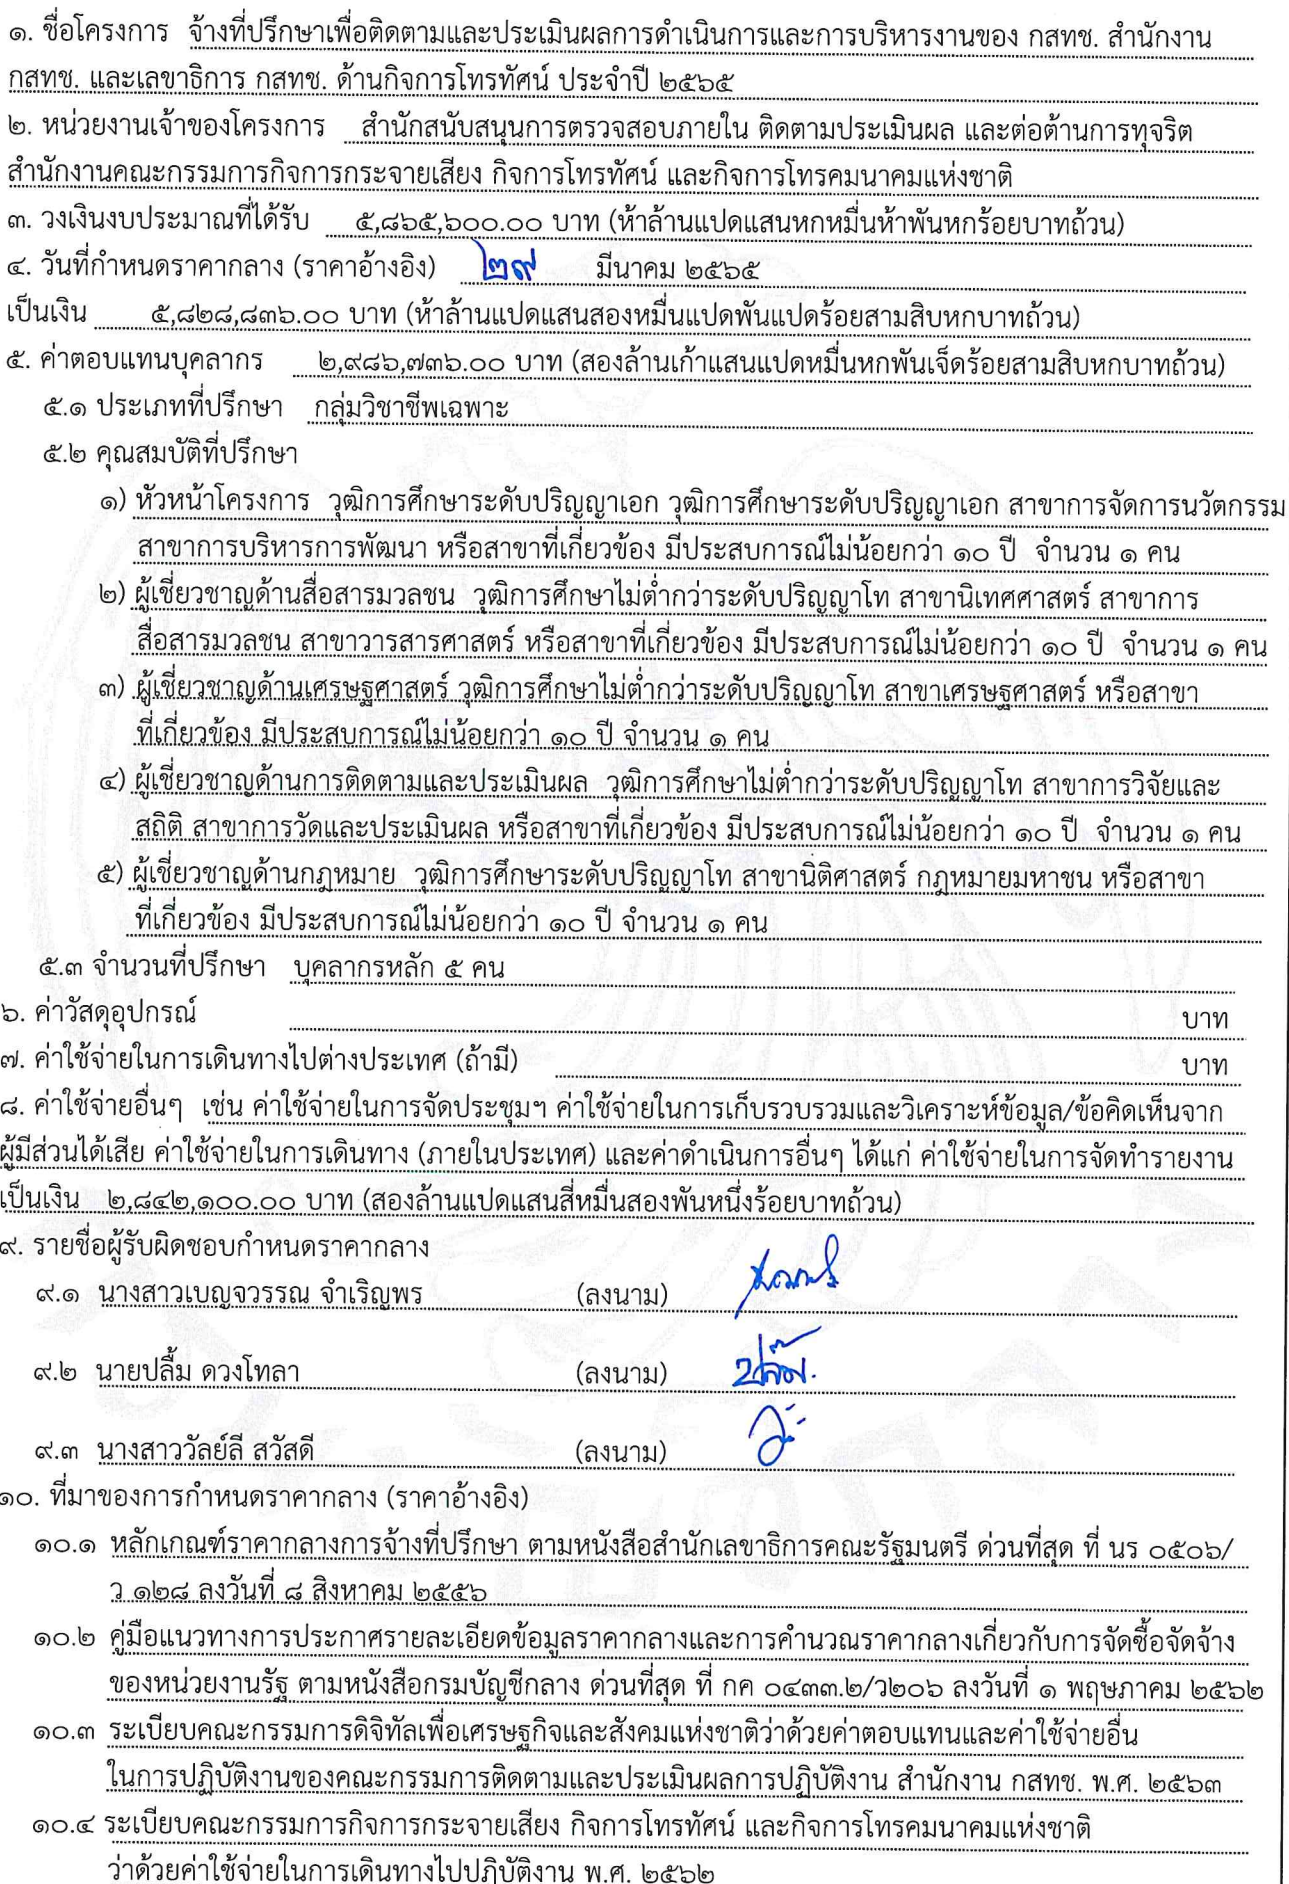 ๑. ชื่อโครงการ จ้างที่ปรึกษาเพื่อติดตามและประเมินผลการดำเนินการและการบริหารงานของ กสทช. สำนักงาน
กสทช. และเลขาธิการ กสทช. ด้านกิจการโทรทัศน์ ประจำปี ๒๕๖๕
๒. หน่วยงานเจ้าของโครงการ สำนักสนับสนุนการตรวจสอบภายใน ติดตามประเมินผล และต่อต้านการทุจริต
สำนักงานคณะกรรมการกิจการกระจายเสียง กิจการโทรทัศน์ และกิจการโทรคมนาคมแห่งชาติ
๓. วงเงินงบประมาณที่ได้รับ ๕,๘๖๕,๖๐๐.๐๐ บาท (ห้าล้านแปดแสนหกหมื่นห้าพันหกร้อยบาทถ้วน)
๔. วันที่กำหนดราคากลาง (ราคาอ้างอิง) ๒๙ มีนาคม ๒๕๖๕
เป็นเงิน ๕,๘๒๘,๘๓๖.๐๐ บาท (ห้าล้านแปดแสนสองหมื่นแปดพันแปดร้อยสามสิบหกบาทถ้วน)
๕. ค่าตอบแทนบุคลากร ๒,๙๘๖,๗๓๖.๐๐ บาท (สองล้านเก้าแสนแปดหมื่นหกพันเจ็ดร้อยสามสิบหกบาทถ้วน)
๕.๑ ประเภทที่ปรึกษา กลุ่มวิชาชีพเฉพาะ
๕.๒ คุณสมบัติที่ปรึกษา
๑) หัวหน้าโครงการ วุฒิการศึกษาระดับปริญญาเอก วุฒิการศึกษาระดับปริญญาเอก สาขาการจัดการนวัตกรรม
สาขาการบริหารการพัฒนา หรือสาขาที่เกี่ยวข้อง มีประสบการณ์ไม่น้อยกว่า ๑๐ ปี จำนวน ๑ คน
๒) ผู้เชี่ยวชาญด้านสื่อสารมวลชน วุฒิการศึกษาไม่ต่ำกว่าระดับปริญญาโท สาขานิเทศศาสตร์ สาขาการ
สื่อสารมวลชน สาขาวารสารศาสตร์ หรือสาขาที่เกี่ยวข้อง มีประสบการณ์ไม่น้อยกว่า ๑๐ ปี จำนวน ๑ คน
๓) ผู้เชี่ยวชาญด้านเศรษฐศาสตร์ วุฒิการศึกษาไม่ต่ำกว่าระดับปริญญาโท สาขาเศรษฐศาสตร์ หรือสาขา
ที่เกี่ยวข้อง มีประสบการณ์ไม่น้อยกว่า ๑๐ ปี จำนวน ๑ คน
๔) ผู้เชี่ยวชาญด้านการติดตามและประเมินผล วุฒิการศึกษาไม่ต่ำกว่าระดับปริญญาโท สาขาการวิจัยและ
สถิติ สาขาการวัดและประเมินผล หรือสาขาที่เกี่ยวข้อง มีประสบการณ์ไม่น้อยกว่า ๑๐ ปี จำนวน ๑ คน
๕) ผู้เชี่ยวชาญด้านกฎหมาย วุฒิการศึกษาระดับปริญญาโท สาขานิติศาสตร์ กฎหมายมหาชน หรือสาขา
ที่เกี่ยวข้อง มีประสบการณ์ไม่น้อยกว่า ๑๐ ปี จำนวน ๑ คน
๕.๓ จำนวนที่ปรึกษา บุคลากรหลัก ๕ คน
๖. ค่าวัสดุอุปกรณ์ บาท
๗. ค่าใช้จ่ายในการเดินทางไปต่างประเทศ (ถ้ามี) บาท
๘. ค่าใช้จ่ายอื่นๆ เช่น ค่าใช้จ่ายในการจัดประชุมฯ ค่าใช้จ่ายในการเก็บรวบรวมและวิเคราะห์ข้อมูล/ข้อคิดเห็นจาก
ผู้มีส่วนได้เสีย ค่าใช้จ่ายในการเดินทาง (ภายในประเทศ) และค่าดำเนินการอื่นๆ ได้แก่ ค่าใช้จ่ายในการจัดทำรายงาน
เป็นเงิน ๒,๘๔๒,๑๐๐.๐๐ บาท (สองล้านแปดแสนสี่หมื่นสองพันหนึ่งร้อยบาทถ้วน)
๙. รายชื่อผู้รับผิดชอบกำหนดราคากลาง
๙.๑ นางสาวเบญจวรรณ จำเริญพร (ลงนาม)
๙.๒ นายปลื้ม ดวงโทลา (ลงนาม) ปลื้ม.
๙.๓ นางสาววัลย์ลี สวัสดี (ลงนาม)
๑๐. ที่มาของการกำหนดราคากลาง (ราคาอ้างอิง)
๑๐.๑ หลักเกณฑ์ราคากลางการจ้างที่ปรึกษา ตามหนังสือสำนักเลขาธิการคณะรัฐมนตรี ด่วนที่สุด ที่ นร ๐๕๐๖/
ว ๑๒๘ ลงวันที่ ๘ สิงหาคม ๒๕๕๖
๑๐.๒ คู่มือแนวทางการประกาศรายละเอียดข้อมูลราคากลางและการคำนวณราคากลางเกี่ยวกับการจัดซื้อจัดจ้าง
ของหน่วยงานรัฐ ตามหนังสือกรมบัญชีกลาง ด่วนที่สุด ที่ กค ๐๔๓๓.๒/ว๒๐๖ ลงวันที่ ๑ พฤษภาคม ๒๕๖๒
๑๐.๓ ระเบียบคณะกรรมการดิจิทัลเพื่อเศรษฐกิจและสังคมแห่งชาติว่าด้วยค่าตอบแทนและค่าใช้จ่ายอื่น
ในการปฏิบัติงานของคณะกรรมการติดตามและประเมินผลการปฏิบัติงาน สำนักงาน กสทช. พ.ศ. ๒๕๖๓
๑๐.๔ ระเบียบคณะกรรมการกิจการกระจายเสียง กิจการโทรทัศน์ และกิจการโทรคมนาคมแห่งชาติ
ว่าด้วยค่าใช้จ่ายในการเดินทางไปปฏิบัติงาน พ.ศ. ๒๕๖๒